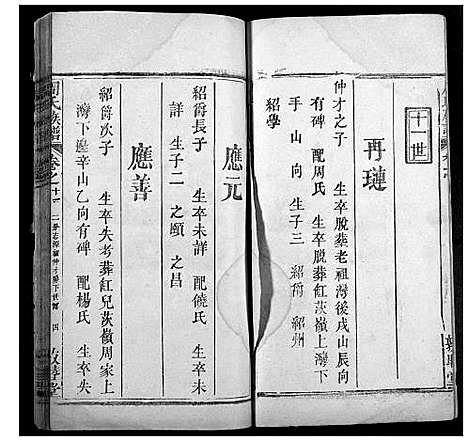 十一世
再璉
仲才之子　生卒脫葬老祖灣後戌山辰向
有碑　配周氏　生卒脫葬紅茨嶺上灣下
手山　向　生子三　紹爵　紹州
紹學
應元
紹爵長子　生卒未詳　配饒氏　生卒未
詳　生子二　之頤　之昌
應善
紹爵次子　生卒失考葬紅兒茨嶺周家上
灣下邊辛山乙向有碑　配楊氏　生卒失
氏族譜　卷之十一　四
敦善堂